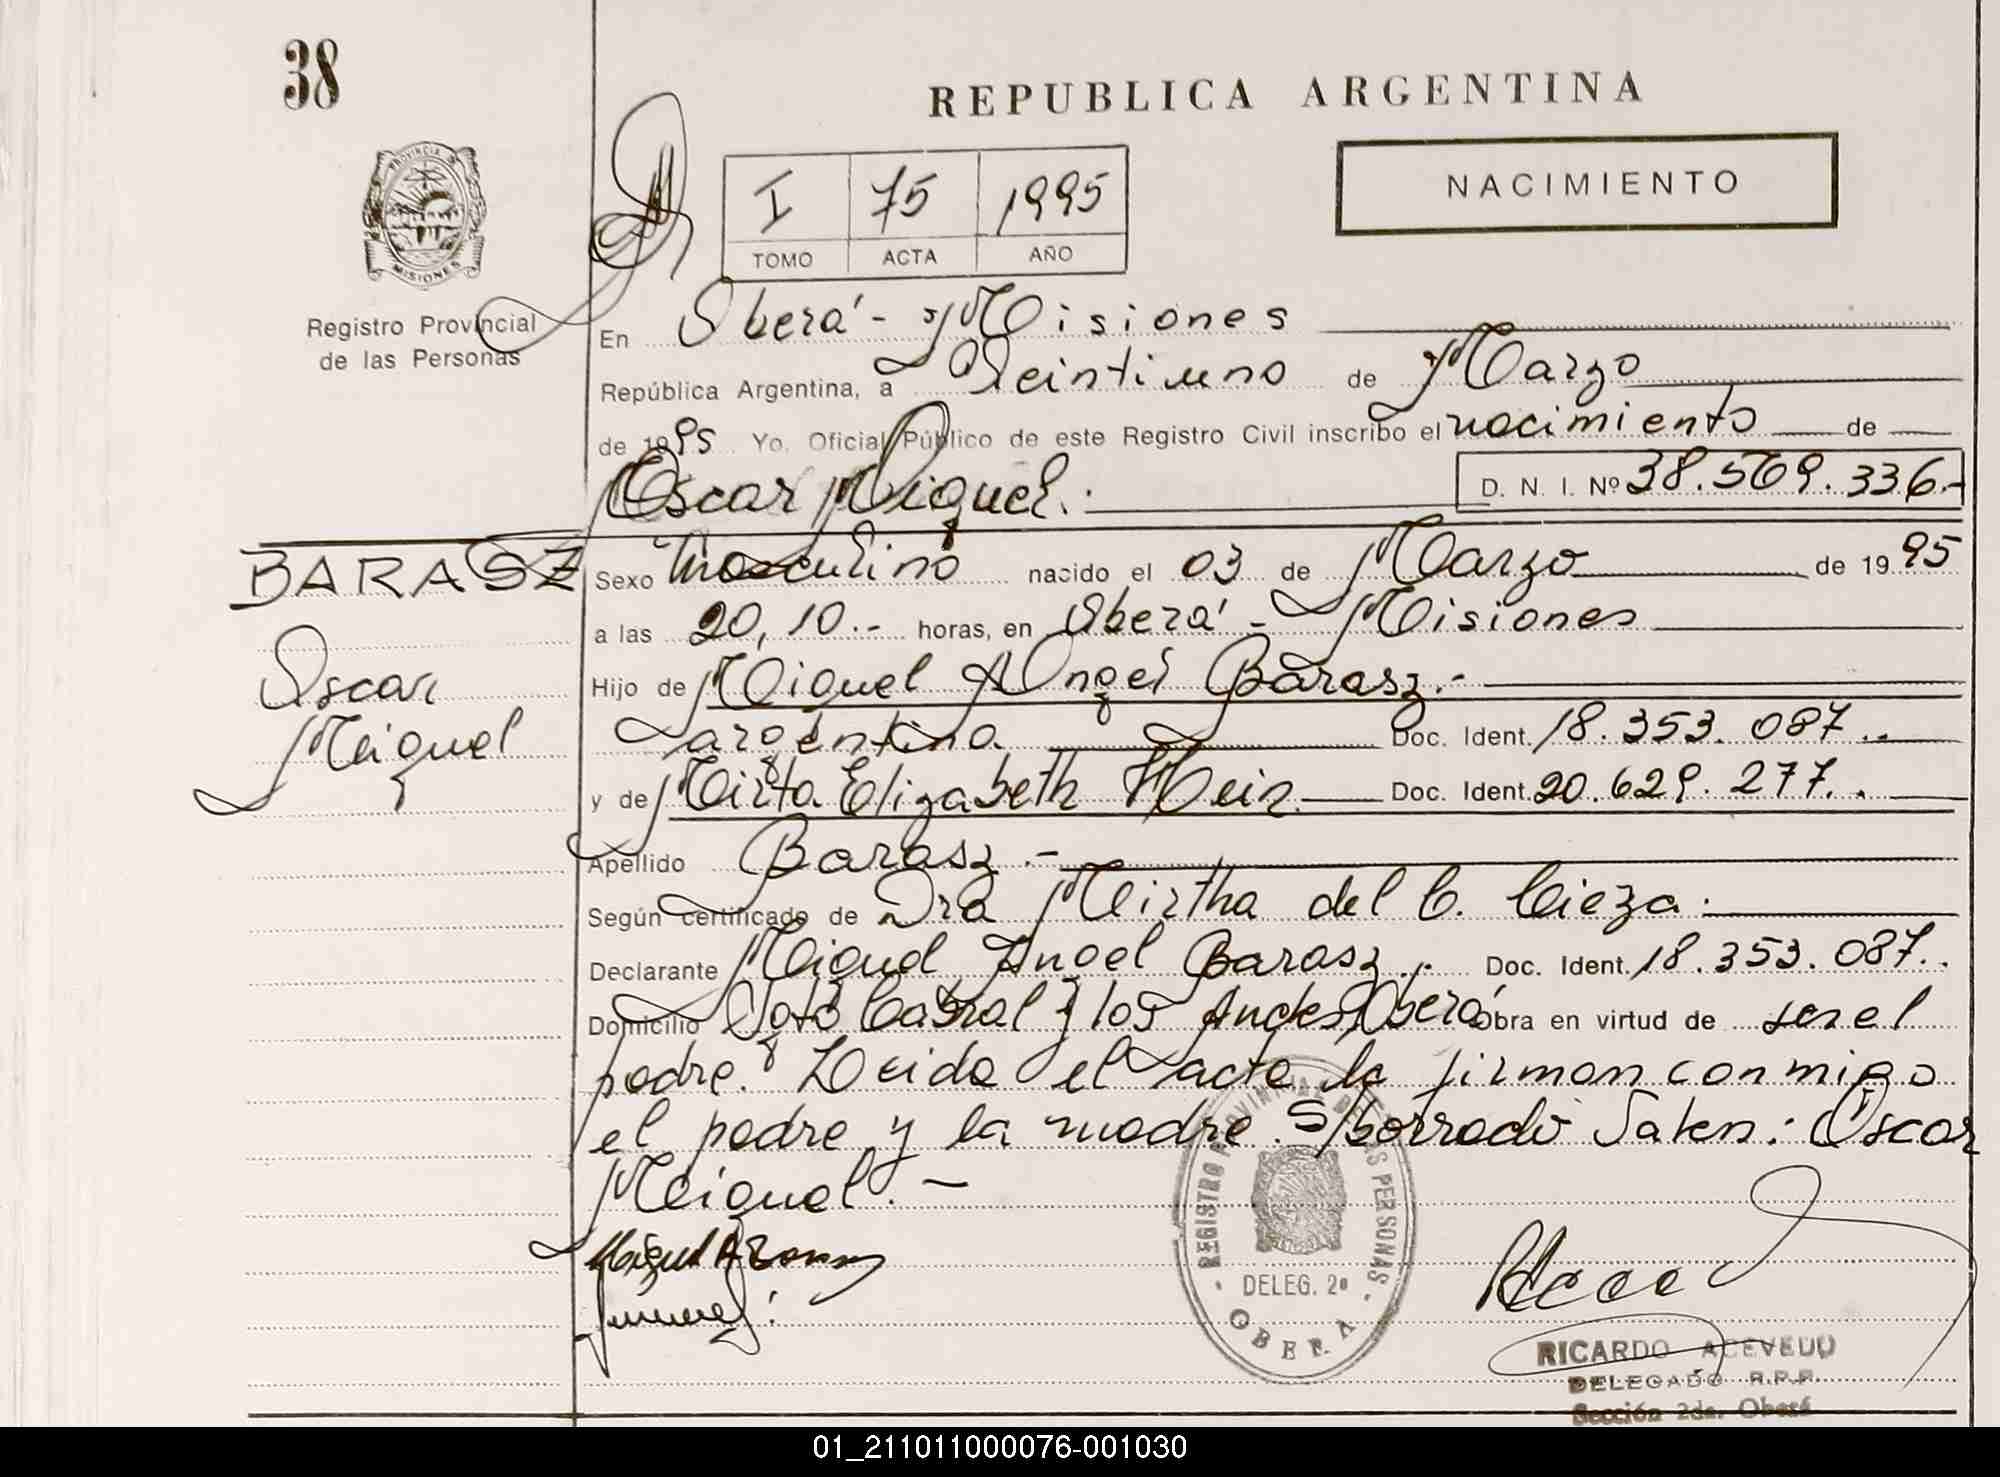 38
REPUBLICA ARGENTINA
NACIMIENTO
I 75 1995
TOMO ACTA AÑO
PROVINCIA DE
MISIONES
Registro Provincial
de las Personas
En Oberá - Misiones
República Argentina, a Veintiuno de Marzo
de 1995 Yo. Oficial Público de este Registro Civil inscribo el nacimiento de
Oscar Miguel.
D. N. I. Nº 38.569.336.-
BARASZ
Oscar
Miguel
Sexo Masculino nacido el 03 de Marzo de 1995
a las 20,10.- horas, en Oberá - Misiones
Hijo de Miguel Angel Barasz.-
argentino Doc. Ident. 18.353.087..
y de Mirta Elizabeth Hein Doc. Ident. 20.629.277..
Apellido Barasz.-
Según certificado de Dra Mirtha del C. Cieza.
Declarante Miguel Angel Barasz.. Doc. Ident. 18.353.087..
Domicilio Sgto Cabral y los Andes Oberá Obra en virtud de ser el
padre. Leida el acta la firman conmigo
el padre y la madre. S/borrado Valen: Oscar
Miguel.-
REGISTRO PROVINCIAL DE LAS PERSONAS
DELEG. 2ª
OBERA
RICARDO ACEVEDO
DELEGADO R.P.P.
Sección 2da. Oberá
01_211011000076-001030